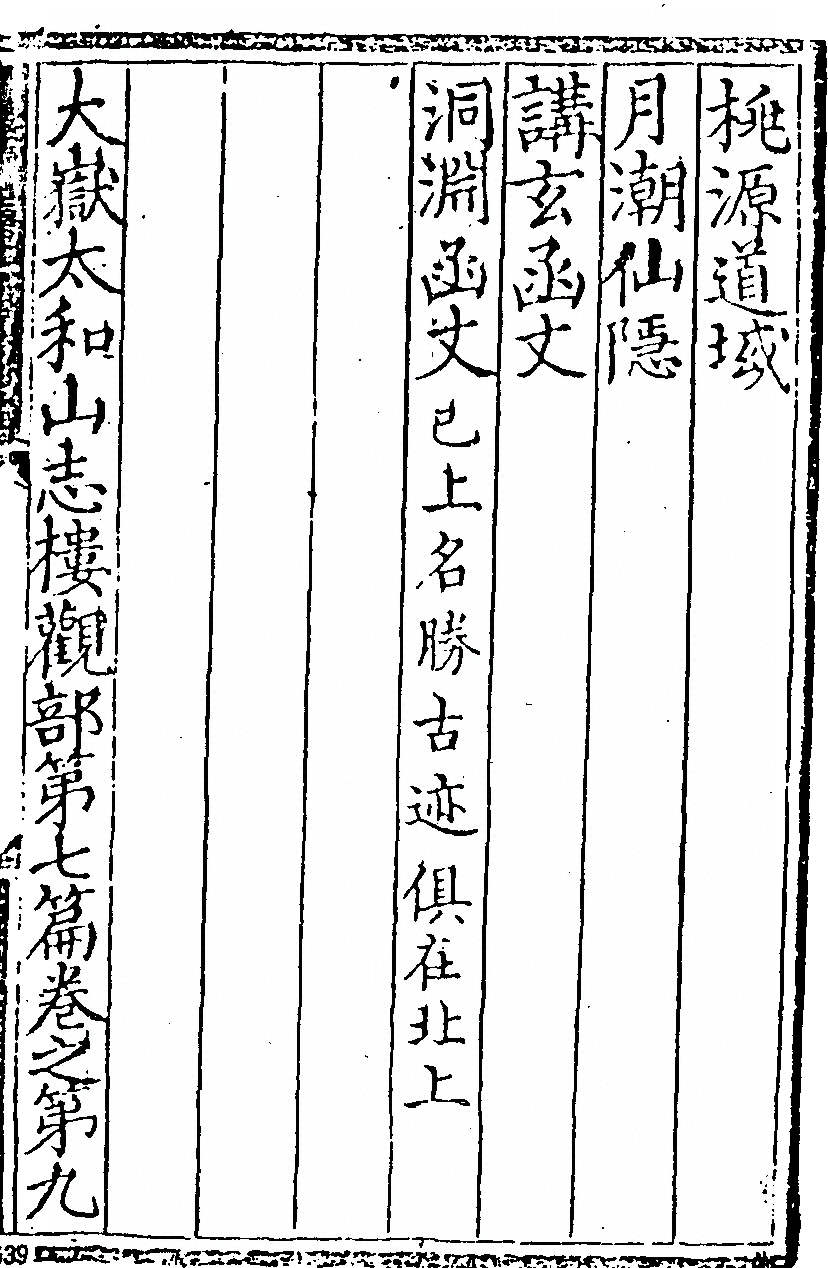 桃源道域
月潮仙隱
講玄函丈
洞淵函丈已上名勝古迹俱在北上
大嶽太和山志樓觀部第七篇卷之第九
639